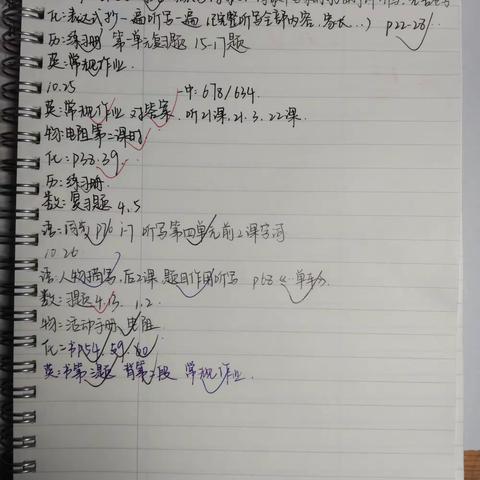 化:表达式抄一遍听写一遍 (完整听写全部内容、家长...) p22-28
历:练习册 第一单元习题 15-17题
英:常规作业.
10.25 一中:678/634.
英:常规作业 对答案、听21课, 21.3.22课.
物:电阻第二课时
化:p38.39.
历:练习册.
数:复习题 4.5
语: p76 1-7 听写第四单元前2课字词
10.26
语:人物描写,后2课 题目作用听写 p68
数:习题4.3, 1.2.
物:活动手册 电阻
化:书p54.59.60
英:书第二题 背第1段 常规作业.